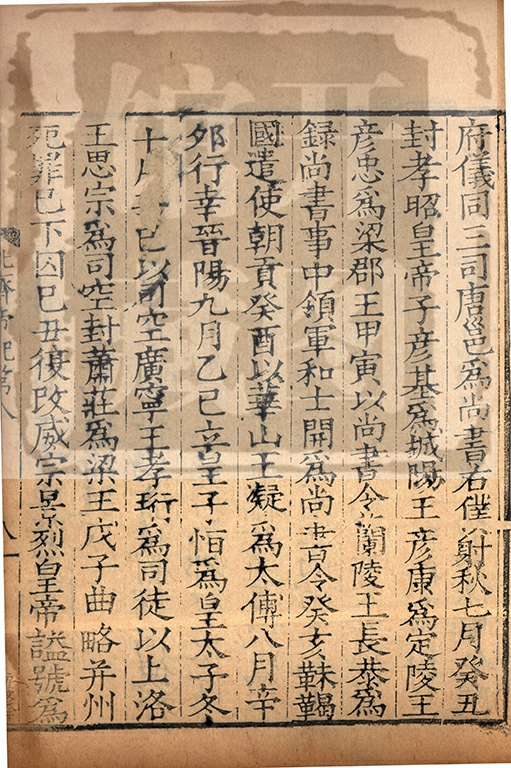 府儀同三司唐邕爲尚書右僕射秋七月癸丑
封孝昭皇帝子彦基爲城陽王彦康爲定陵王
彦忠爲梁郡王甲寅以尚書令蘭陵王長恭爲
録尚書事中領軍和士開爲尚書令癸亥靺鞨
國遣使朝貢癸酉以華山王凝爲太傅八月辛
夘行幸晉陽九月乙巳立皇子恒爲皇太子冬
十月 巳以司空廣寧王孝珩爲司徒以上洛
王思宗爲司空封蕭莊爲梁王戊子曲略并州
死罪已下囚己丑復改威宗景烈皇帝謚號爲
北齊帝紀第八